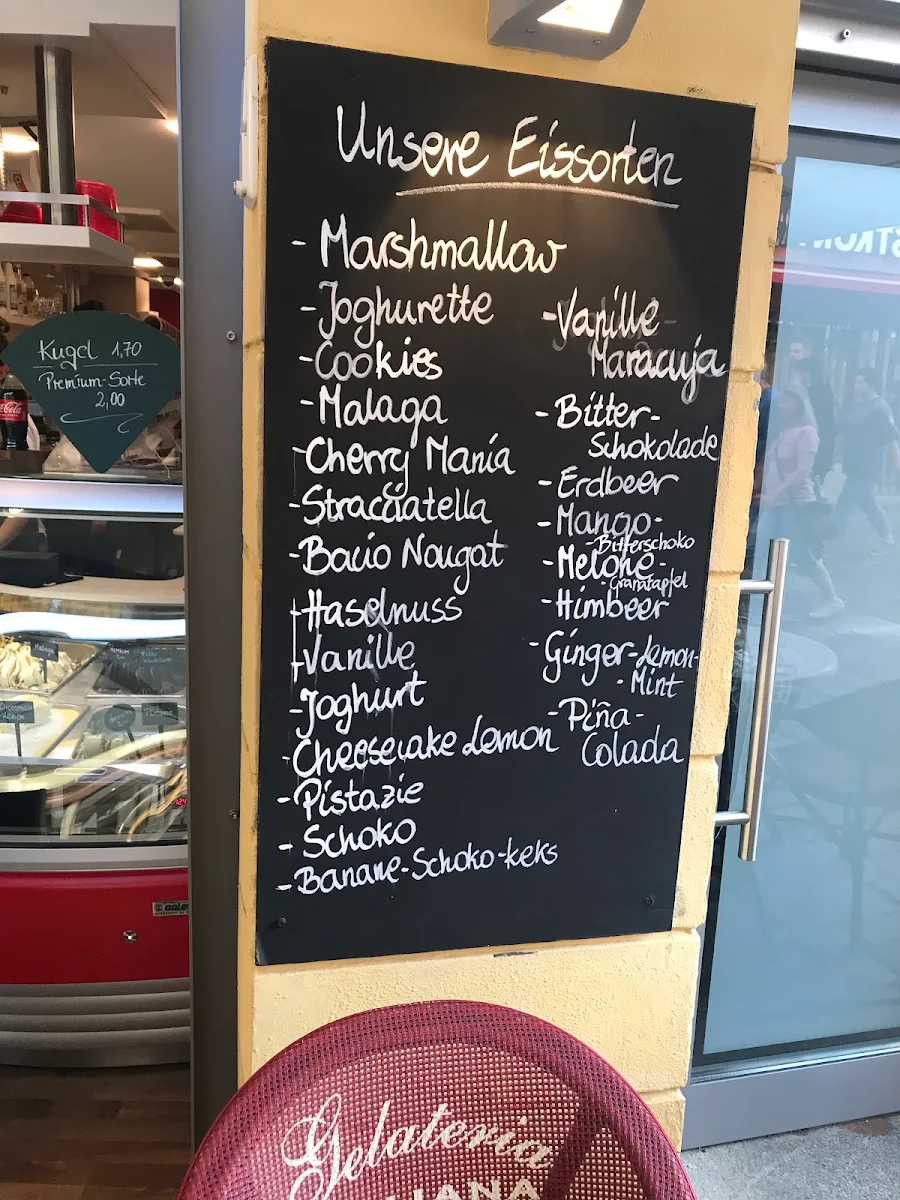 Unsere Eissorten
- Marshmallow
- Joghurette
- Cookies
- Malaga
- Cherry Mania
- Stracciatella
- Bacio Nougat
- Haselnuss
- Vanille
- Joghurt
- Cheesecake Lemon
- Pistazie
- Schoko
- Banane-Schoko-keks
- Vanille
Maracuja
- Bitter-
Schokolade
- Erdbeer
- Mango-
- Bitterschoko
- Melone-
- Granatapfel
- Himbeer
- Ginger-Lemon-
- Mint
- Piña-
Colada
Kugel 1,70
Premium-Sorte
2,00
Coca-Cola
Malaga
Gelateria